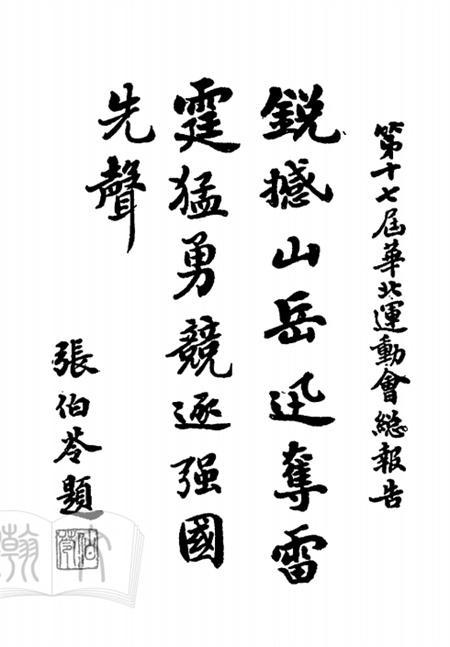 第十七屆華北運動會總報告
銳撼山岳迅奪雷
霆猛勇競逐强國
先聲
張伯苓題